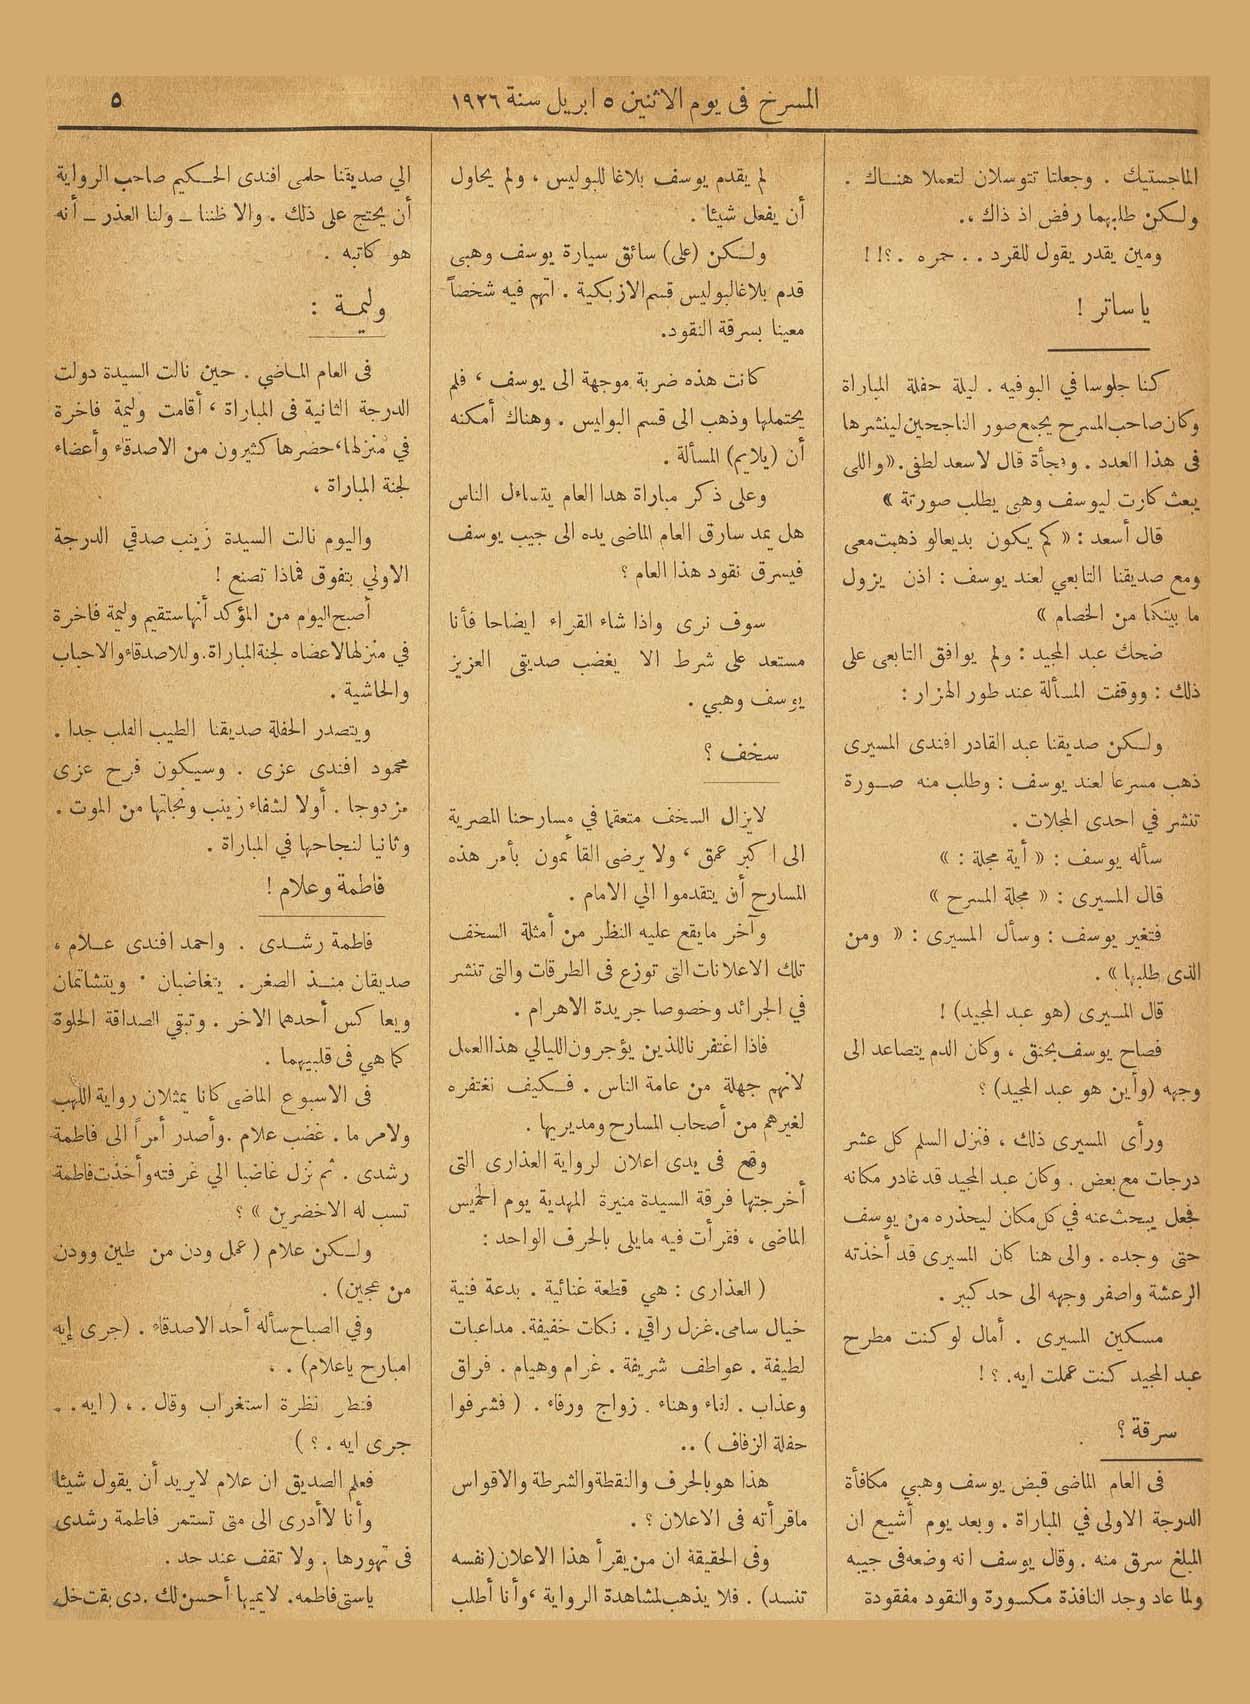 المسرح فى يوم الاثنين ٥ ابريل سنة ١٩٢٦
٥
الماجستيك . وجعلتا تتوسلان لتعملا هناك .
ولكن طلبهما رفض اذ ذاك ..
ومين يقدر يقول للقرد . . حمره . ؟!!
يا ساتر !
كنا جلوسا في البوفيه . ليلة حفلة المباراة
وكان صاحب المسرح يجمع صور الناجحين لينشرها
فى هذا العدد . وفجأة قال لاسعد لطفى . « واللى
يبعث كارت ليوسف وهبى يطلب صورتة »
قال أسعد : « كم يكون بديعا لو ذهبت معى
ومع صديقنا التابعي لعند يوسف : اذن يزول
ما بينكما من الخصام »
ضحك عبد المجيد : ولم يوافق التابعى على
ذلك : ووقفت المسألة عند طور الهزار :
ولكن صديقنا عبد القادر افندى المسيرى
ذهب مسرعا لعند يوسف : وطلب منه صورة
تنشر في احدى المجلات .
سأله يوسف : « أية مجلة : »
قال المسيرى : « مجلة المسرح »
فتغير يوسف : وسأل المسيرى : « ومن
الذى طلبها » .
قال المسيرى (هو عبد المجيد) !
فصاح يوسف بحنق ، وكان الدم يتصاعد الى
وجهه (وأين هو عبد المجيد) ؟
ورأى المسيرى ذلك ، فنزل السلم كل عشر
درجات مع بعض . وكان عبد المجيد قد غادر مكانه
فجعل يبحث عنه في كل مكان ليحذره من يوسف
حتى وجده . والى هنا كان المسيرى قد أخذته
الرعشة واصفر وجهه الى حد كبير .
مسكين المسيرى . أمال لو كنت مطرح
عبد المجيد كنت عملت ايه . ؟ !
سرقة ؟
فى العام الماضى قبض يوسف وهبي مكافأة
الدرجة الاولى في المباراة . وبعد يوم أشيع ان
المبلغ سرق منه . وقال يوسف انه وضعه فى جيبه
ولما عاد وجد النافذة مكسورة والنقود مفقودة
لم يقدم يوسف بلاغا للبوليس ، ولم يحاول
أن يفعل شيئا .
ولكن (على) سائق سيارة يوسف وهبى
قدم بلاغا لبوليس قسم الازبكية . اتهم فيه شخصاً
معينا بسرقة النقود.
كانت هذه ضربة موجهة الى يوسف ، فلم
يحتملها وذهب الى قسم البوليس . وهناك أمكنه
أن (يلايم) المسألة .
وعلى ذكر مباراة هدا العام يتساءل الناس
هل يمد سارق العام الماضى يده الى جيب يوسف
فيسرق نقود هذا العام ؟
سوف نرى واذا شاء القراء ايضاحا فأنا
مستعد على شرط الا يغضب صديقى العزيز
يوسف وهبي .
سخف ؟
لا يزال السخف متعقما في مسارحنا المصرية
الى اكبر عمق ، ولا يرضى القائمون بأمر هذه
المسارح أن يتقدموا الي الامام .
وآخر ما يقع عليه النظر من أمثلة السخف
تلك الاعلانات التى توزع فى الطرقات والتى تنشر
في الجرائد وخصوصا جريدة الاهرام .
فاذا اغتفر ناللذين يؤجرون الليالي هذا العمل
لانهم جهلة من عامة الناس . فكيف نغتفره
لغيرهم من أصحاب المسارح ومديريها .
وقع فى يدى اعلان لرواية العذارى التى
أخرجتها فرقة السيدة منيرة المهدية يوم الخميس
الماضى ، فقرأت فيه مايلى بالحرف الواحد :
( العذارى : هي قطعة غنائية . بدعة فنية
خيال سامى . غزل راقي . نكات خفيفة . مداعبات
لطيفة . عواطف شريفة . غرام وهيام . فراق
وعذاب . لقاء وهناء . زواج ورفاء . ( فشرفوا
حفلة الزفاف ) ..
هذا هو بالحرف والنقطة والشرطة والاقواس
ماقرأته فى الاعلان ؟ .
وفى الحقيقة ان من يقرأ هذا الاعلان (نفسه
تنسد) . فلا يذهب لمشاهدة الرواية ، وأنا أطلب
الي صديقنا حلمى افندى الحكيم صاحب الرواية
أن يحتج على ذلك . والا ظننا ـ ولنا العذر ـ أنه
هو كاتبه .
وليمة :
فى العام الماضي . حين نالت السيدة دولت
الدرجة الثانية فى المباراة ، أقامت وليمة فاخرة
في منزلها ، حضرها كثيرون من الاصدقاء وأعضاء
لجنة المباراة .
واليوم نالت السيدة زينب صدقي الدرجة
الاولي بتفوق فماذا تصنع !
أصبح اليوم من المؤكد أنها ستقيم وليمة فاخرة
في منزلها لاعضاء لجنة المباراة . وللاصدقاء والاحباب
والحاشية .
ويتصدر الحفلة صديقنا الطيب القلب جدا .
محمود افندى عزى . وسيكون فرح عزى
مزدوجا . أولا لشفاء زينب ونجاتها من الموت .
وثانيا لنجاحها في المباراة .
فاطمة وعلام !
فاطمة رشدى . واحمد افندى علام ،
صديقان منذ الصغر . يتغاضبان . ويتشاتمان
ويعاكس أحدهما الاخر . وتبقي الصداقة الحلوة
كما هي فى قلبيهما .
فى الاسبوع الماضى كانا يمثلان رواية اللهب
ولامر ما . غضب علام . وأصدر أمراً الى فاطمة
رشدى . ثم نزل غاضبا الي غرفته وأخذت فاطمة
تسب له الاخضرين » ؟
ولكن علام ( عمل ودن من طين وودن
من عجين) .
وفي الصباح سأله أحد الاصدقاء . (جرى إيه
امبارح ياعلام) . .
فنظر نظرة استغراب وقال . . ( ايه . .
جرى ايه . ؟ )
فعلم الصديق ان علام لا يريد أن يقول شيئا
وأنا لا أدرى الى متى تستمر فاطمة رشدى
فى تهورها . ولا تقف عند حد .
ياستى فاطمه . لايميها أحسن لك . دى بقت خل